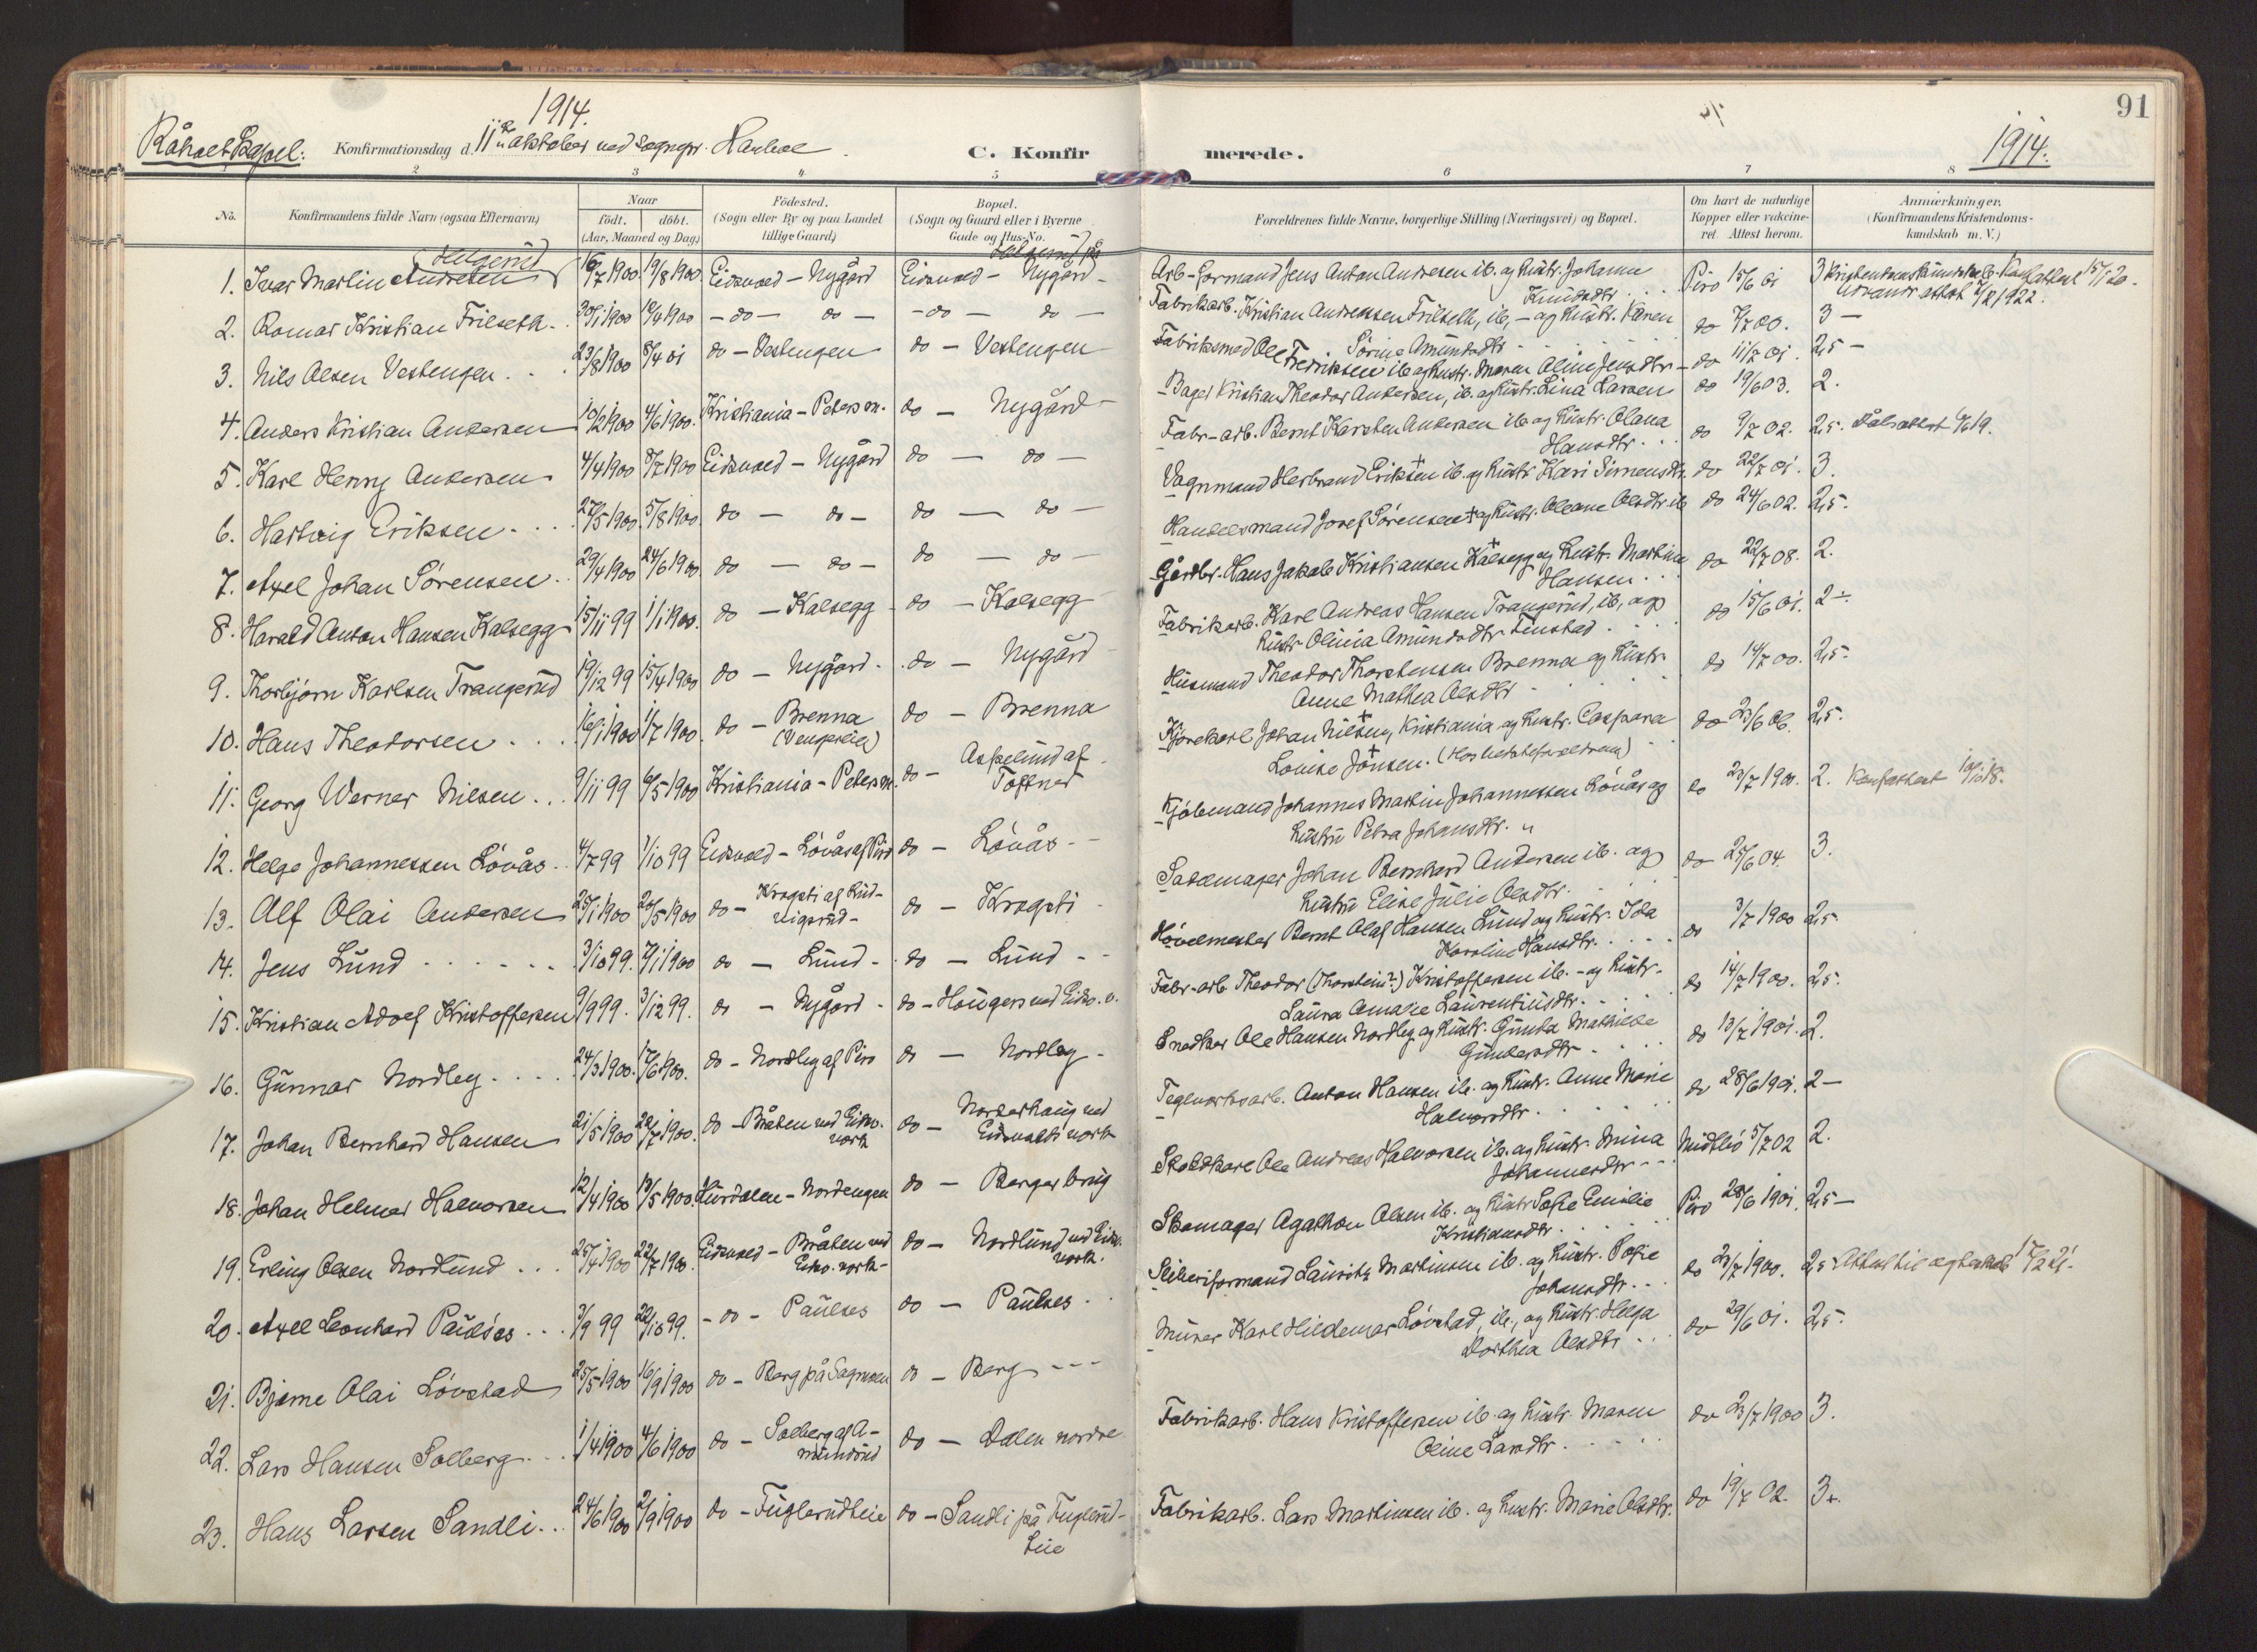 1914.
91
Råholt Kapel: Konfirmationsdag d. 11 oktober ved sognepr.
C. Konfirmerede.
1914.
2 3 4 5 6 7 8
No. Konfirmandens fulde Navn (ogsaa Efternavn) Naar födt. döbt. (Aar, Maaned og Dag.) Födested. (Sogn eller By og paa Landet tillige Gaard.) Bopæl. (Sogn og Gaard eller i Byerne Gade og Hus-No. Forældrenes fulde Navne, borgerlige Stilling (Næringsvei) og Bopæl. Om havt de naturlige Kopper eller vakcineret. Attest herom. Anmærkninger. (Konfirmandens Kristendomskundskab m. V.)
Helgerud
1. Ivar Martin Andresen 16/7 1900 19/8 1900 Eidsvold - Nygård Eidsvold - Nygård - Arb-formand Jens Anton Andresen ib. og hustr. Johanne Knudsdtr Piro 15/6 01 3
2. Romar Kristian Frilseth. 30/1 1900 - do - do - - do - do - Fabrikarb. Kristian Andreassen Frilseth, ib, - og hustr. Karen Sörine Amundsdtr do 00. 3 -
3. Nils Olsen Vestengen. 23/8 1900 8/4 01 do - Vestengen do - Vestengen Fabriksmed Ole Fredriksen ib og hustr. Maren Oline Jensdtr - do 11/7 01. 2,5 -
4. Anders Kristian Andersen 10/2 1900 4/6 1900. Kristiania - Peters m. do - Nygård - Bager Kristian Theodor Andersen, ib. og hustr. Lina Larsen do 19/6 03. 2.
5. Karl Henry Andersen 4/4 1900 8/7 1900 Eidsvold - Nygård do - do - Fabr-arb. Bernt Karsten Andersen ib og hustr. Olava Hansdtr. do 9/7 02. 2,5. Dåbsattest
6. Hartvig Eriksen. 27/5 1900 5/8 1900. do - do - do - do - Vognmand Herbrand Eriksen + ib. og hustr. Kari Simensdtr. do 22/7 01. 3.
7. Axel Johan Sörensen. 29/4 1900 24/6 1900. do - do - do - do - Handelsmand Josef Sörensen + og hustr. Oleane Olsdtr ib do 24/6 02. 2,5.
8. Harald Anton Hansen Kalsegg 15/11 99 1/1 1900. do - Kalsegg - do - Kalsegg Gårdbr. Hans Jakob Kristiansen Kalsegg og hustr. Martine Hansen. do 22/7 08. 2.
9. Thorbjörn Karlsen Trangerud 19/12 99 15/4 1900 do - Nygård. do - Nygård Fabrikarb. Karl Andreas Hansen Trangerud, ib, og hustr. Olinia Amundsdtr Finstad do 15/6 01. 2 -.
10. Hans Theodorsen. 16/1 1900 1/7 1900. do - Brenna do - Brenna Husmand Theodor Thorstensen Brenna og hustr. Anne Mathea Olsdtr do 14/7 00. 2,5.
11. Georg Werner Nilsen. 9/11 99 6/5 1900 Kristiania - Peters m. do - Aspelund af Toftner Kjörekarl Johan Nilsen, + Kristiania og hustr. Caspara Louise + Jönsen. do 23/6 06. 2,5.
12. Helge Johannessen Lövås. 4/7 99 1/10 99 Eidsvold - Lövås af Piro do - Lövås - Kjöbmand Johannes Martin Johannessen Lövås og hustru Petra Johansdtr. do 23/7 1900. 2. Konfattest
13. Alf Olai Andersen 25/1 1900 20/5 1900 do - Krogsti af Rud- do - Krogsti Sadelmager Johan Bernhard Andersen ib. og hustru Elise Julie Olsdtr. do 25/6 04 3.
14. Jens Lund 3/10 99. 7/1 1900 do - Lund - do - Lund - - Hövelmester Bernt Olaf Hansen Lund og hustr. Ida Karoline Hansdtr. do 3/7 1900 2,5
15. Kristian Adolf Kristoffersen 9/9 99. 3/12 99. do - Nygård - do - Haugers ved Eidsv. v. Fabr-arb. Theodor (Thorstein?) Kristoffersen ib. - og hustr. Laura Amalie Laurentiusdtr. do 14/7 1900. 2,5.
16. Gunnar Nordley. 24/3 1900. 17/6 1900. do - Nordley af Piro do - Nordley - Snedker Ole Hansen Nordley og hustr. Gunda Mathilde Gundersdtr do 13/7 1901. 2.
17. Johan Bernhard Hansen 21/5 1900 22/7 1900. do - Bråten ved Eidsv. verk do - Norderhaug ved Eidsvolds verk Teglverksarb. Anton Hansen ib. og hustr. Anne Marie Halvorsdtr. do 28/6 1901. 2 -
18. Johan Helmer Halvorsen 12/4 1900 13/5 1900. Hurdalen - Nordengen do - Berger brug Stoldkarl Ole Andreas Halvorsen ib. og hustr. Mina Johannesdtr - - 5/7 02 2.
19. Erling Olsen Nordlund 25/4 1900 22/7 1900. Eidsvold - Bråten ved Eidsv. verk - do - Nordlund ved Eidsv. verk. Skomager Agathon Olsen ib. og hustr. Sofie Emilie Kristiansdtr. Piro 28/6 1901. 2,5 -
20. Axel Leonhard Paulses 3/9 99 22/10 99. - do - Paulses do - Paulses. Sliberiformand Lauritz Martinsen ib. og hustr. Sofie Johansdtr. do 23/7 1900. 2,5
21. Bjarne Olai Lövstad 25/5 1900 16/9 1900 do - Berg på Sagmoen do - Berg - - - Murer Karl Hildemar Lövstad, ib., og hustr. Helga Dorthea Olsdtr do 29/6 01. 2,5.
22. Lars Hansen Solberg. 1/4 1900 4/6 1900 do - Solberg af Amundrud do - Dalen nordre Fabrikarb. Hans Kristoffersen ib. og hustr. Maren Oline Larsdtr. do 23/7 1900 3.
23. Hans Larsen Sandli. 24/6 1900 2/9 1900 do - Fuglerudleie do - Sandli på Fuglerud- leie Fabrikarb. Lars Martinsen ib. og hustr. Marie Olsdtr. do 19/7 02. 3 -.